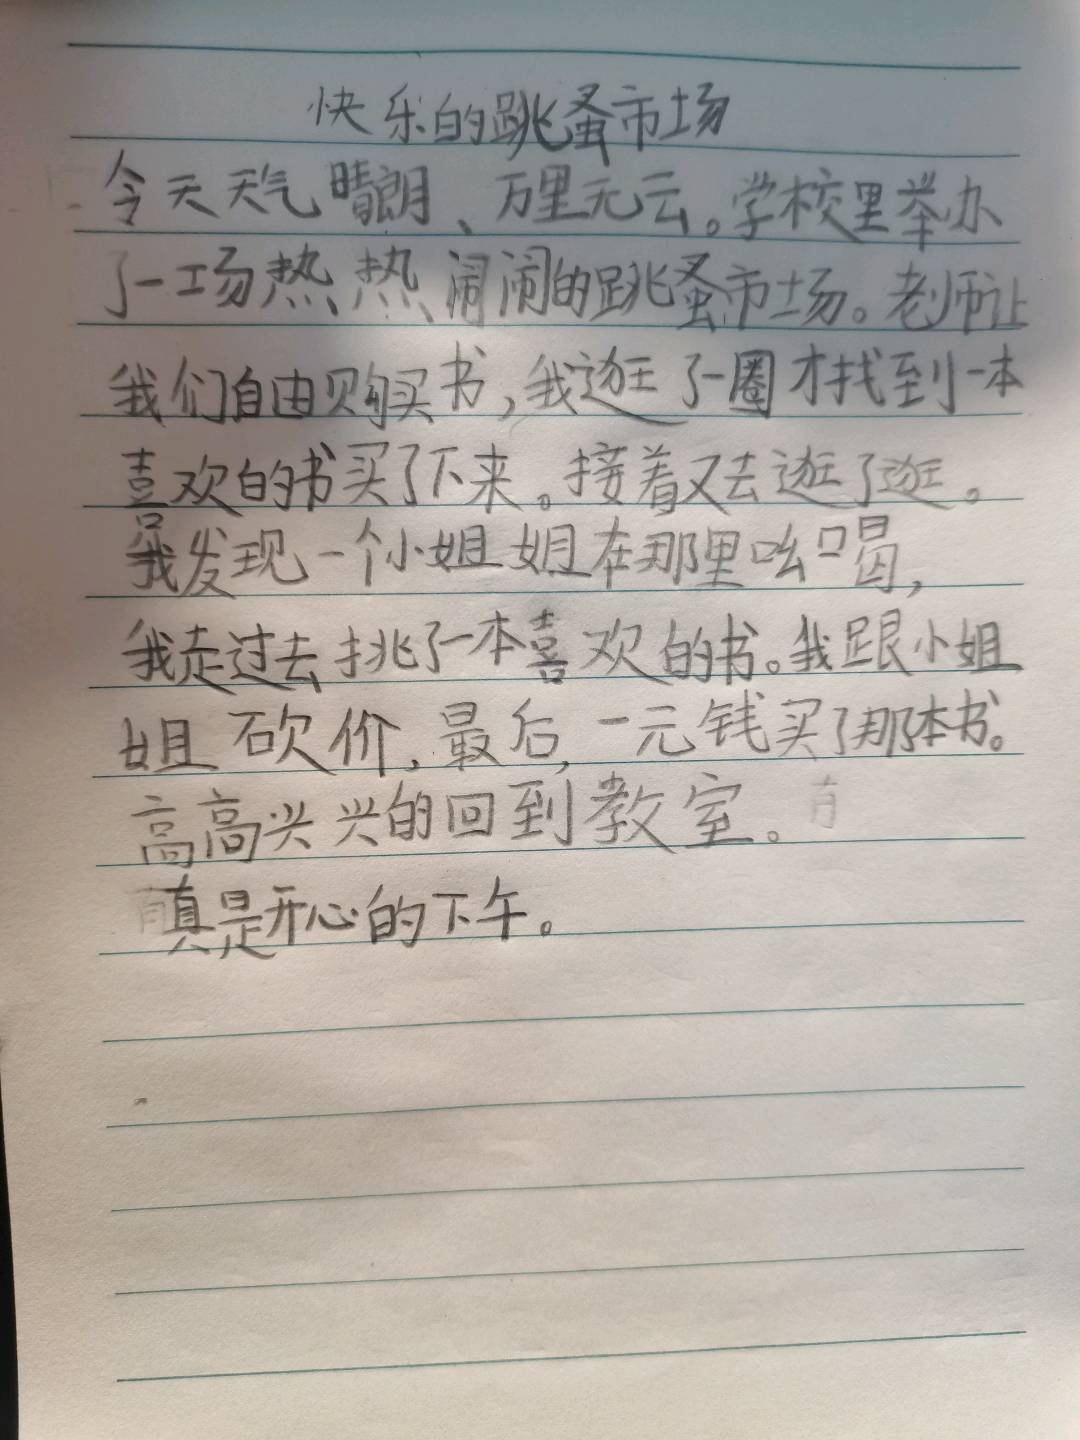 快乐的跳蚤市场
今天天气晴朗、万里无云。学校里举办
了一场热热闹闹的跳蚤市场。老师让
我们自由购买书,我逛了一圈才找到一本
喜欢的书买了下来。接着又去逛了逛。
我发现一个小姐姐在那里吆喝,
我走过去挑了一本喜欢的书。我跟小姐
姐砍价,最后,一元钱买了那本书。
高高兴兴的回到教室。
真是开心的下午。